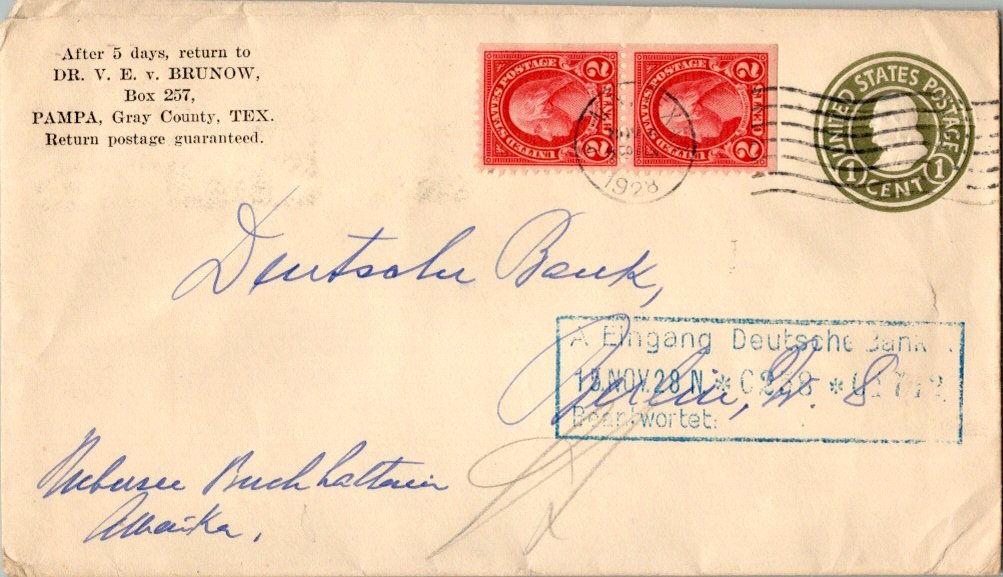 After 5 days, return to
DR. V. E. v. BRUNOW,
Box 257,
PAMPA, Gray County, TEX.
Return postage guaranteed.
UNITED STATES POSTAGE
2 CENTS 2
UNITED STATES POSTAGE
2 CENTS 2
1928
UNITED STATES POSTAGE
1 CENT 1
Deutsche Bank,
Berlin, W. 8
A Eingang Deutsche Bank
NOV. 28 N. *
Beantwortet:
Uebersee Buchhalterei
Amerika.